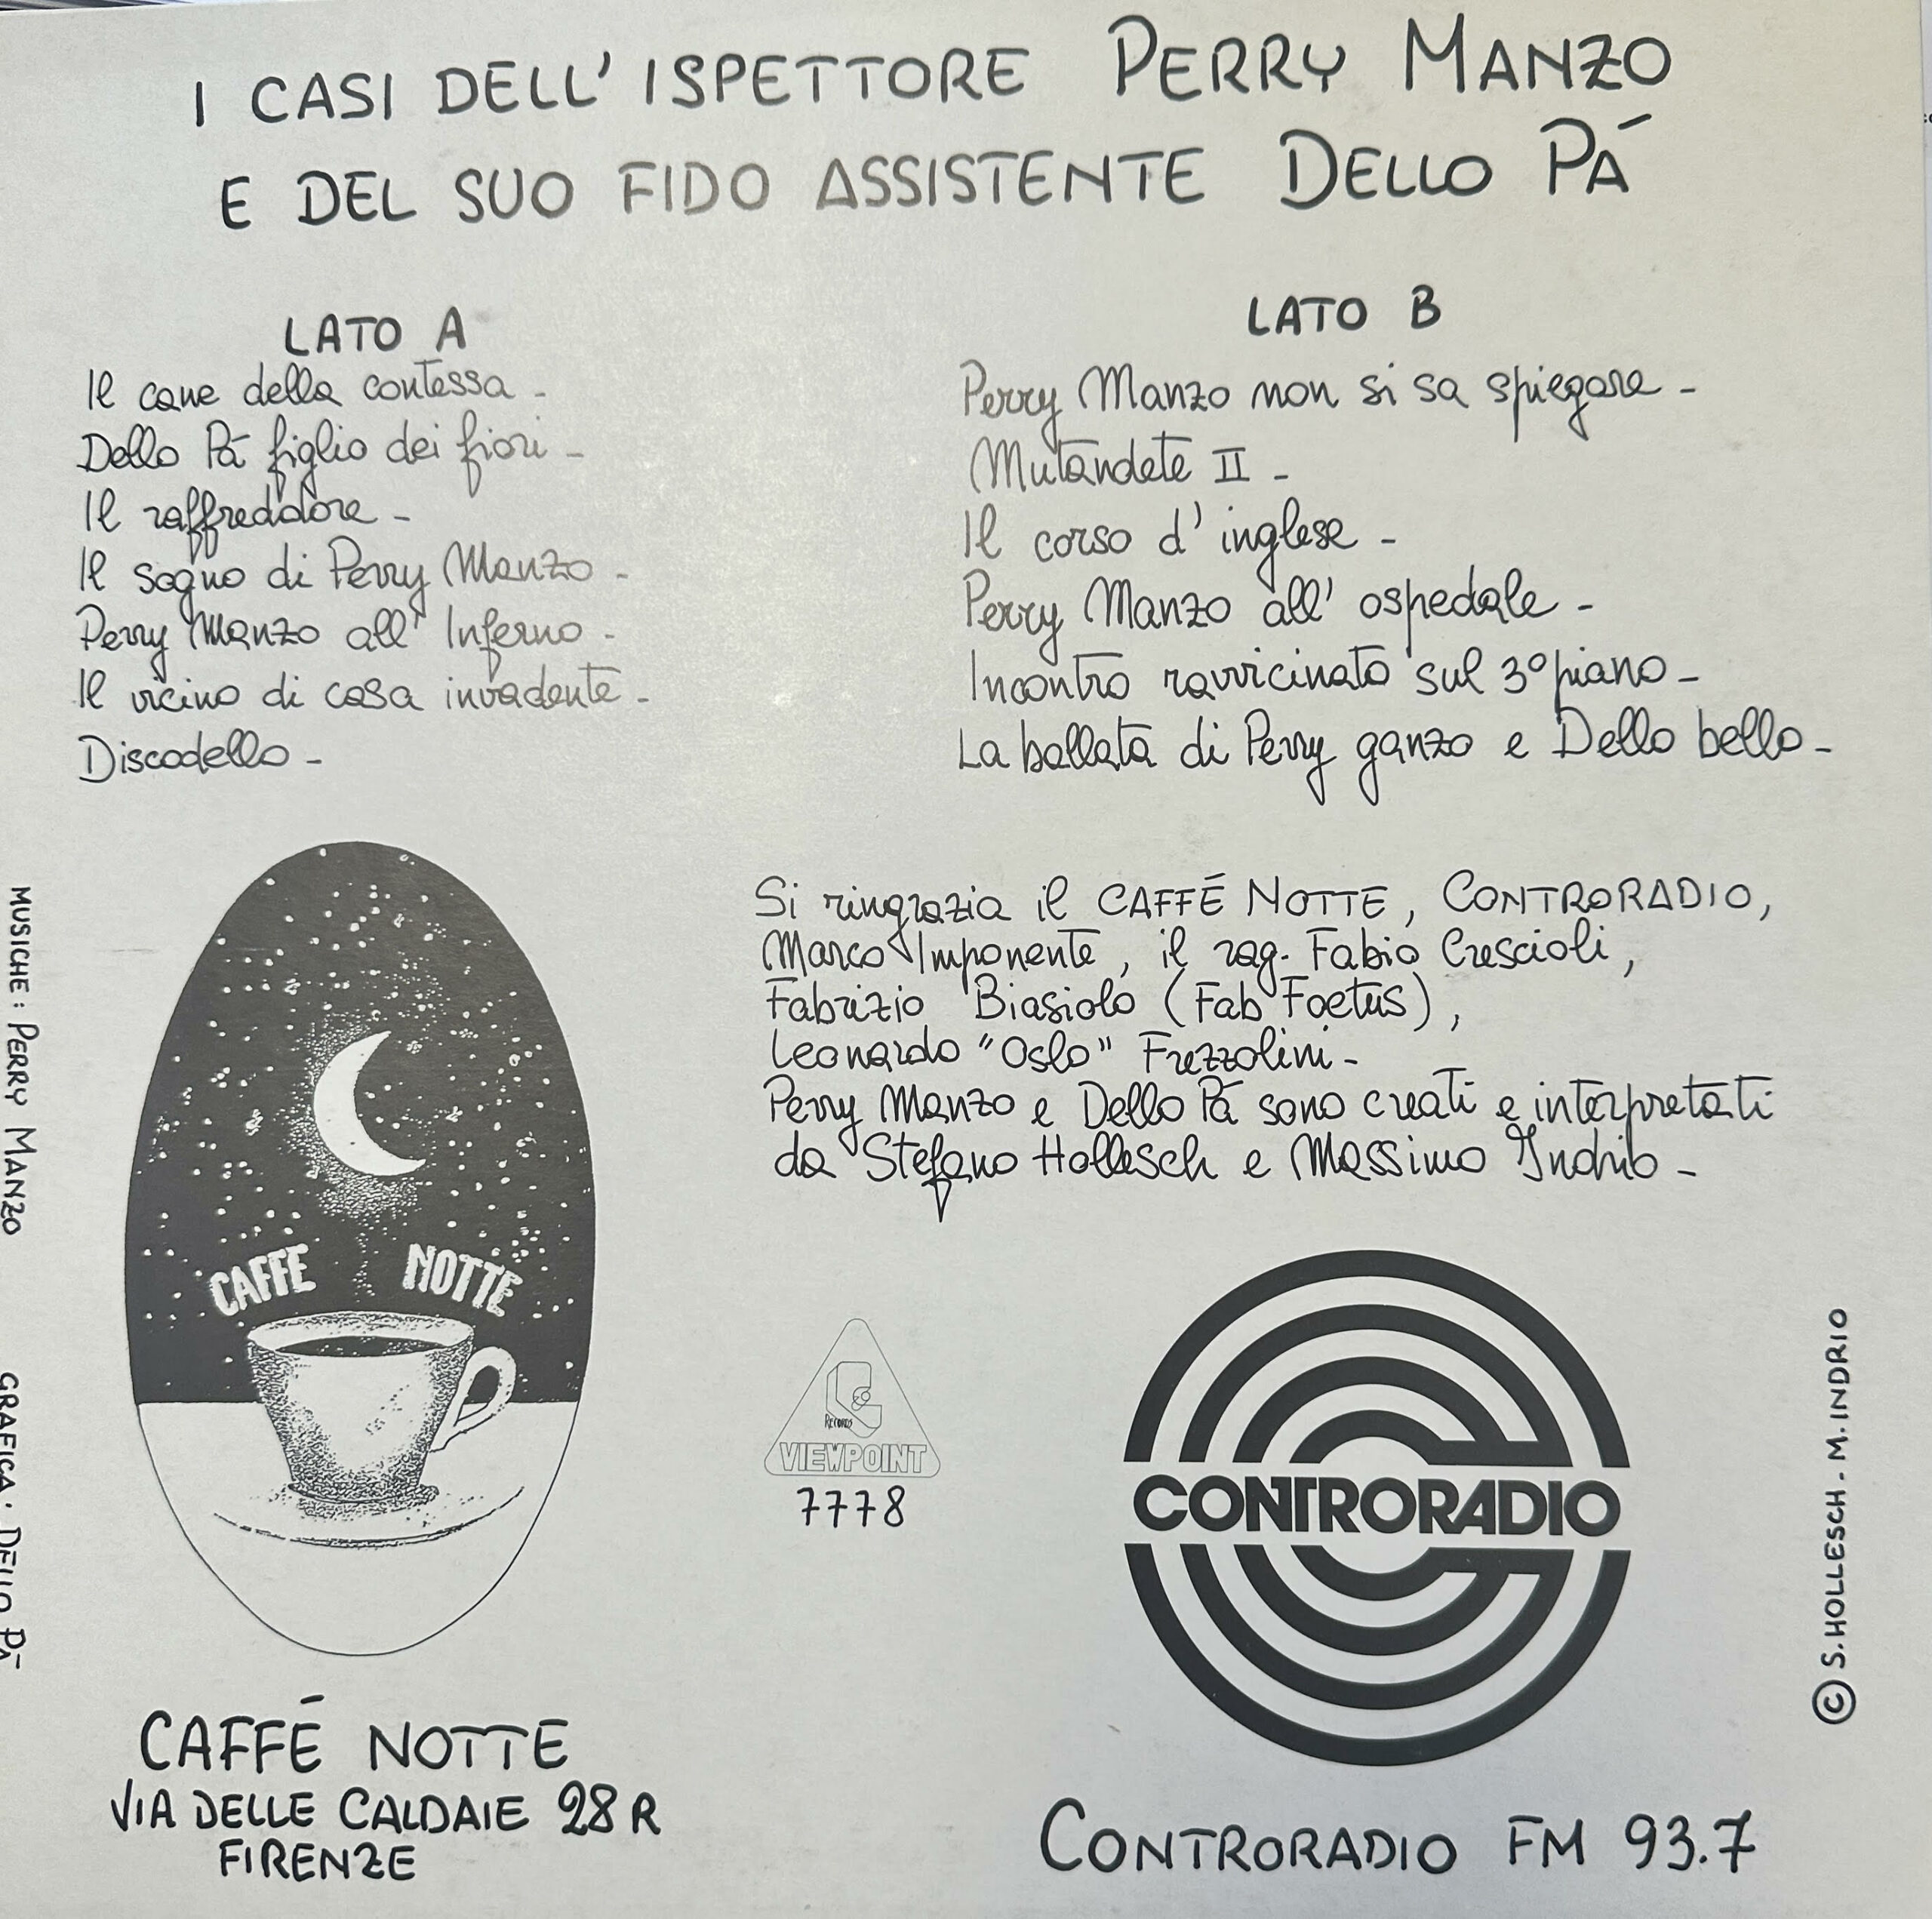 I CASI DELL' ISPETTORE PERRY MANZO
E DEL SUO FIDO ASSISTENTE DELLO PÁ
LATO A
Il cane della contessa -
Dello Pá figlio dei fiori -
Il raffreddore -
Il sogno di Perry Manzo -
Perry Manzo all' Inferno -
Il vicino di casa invadente -
Discodello -
LATO B
Perry Manzo non si sa spiegare -
Mutandete II -
Il corso d' inglese -
Perry Manzo all' ospedale -
Incontro ravvicinato sul 3° piano -
La ballata di Perry ganzo e Dello bello -
Si ringrazia il CAFFÉ NOTTE, CONTRORADIO,
Marco Imponente, il rag. Fabio Crescioli,
Fabrizio Biasiolo (Fab Foetus),
Leonardo "Oslo" Frezzolini -
Perry Manzo e Dello Pá sono creati e interpretati
da Stefano Hollesch e Massimo Indrio -
MUSICHE: PERRY MANZO
GRAFICA: DELLO PÁ
CAFFE NOTTE
CAFFÉ NOTTE
VIA DELLE CALDAIE 28 R
FIRENZE
RECORDS
VIEWPOINT
7778
CONTRORADIO
CONTRORADIO FM 93.7
© S. HOLLESCH - M. INDRIO